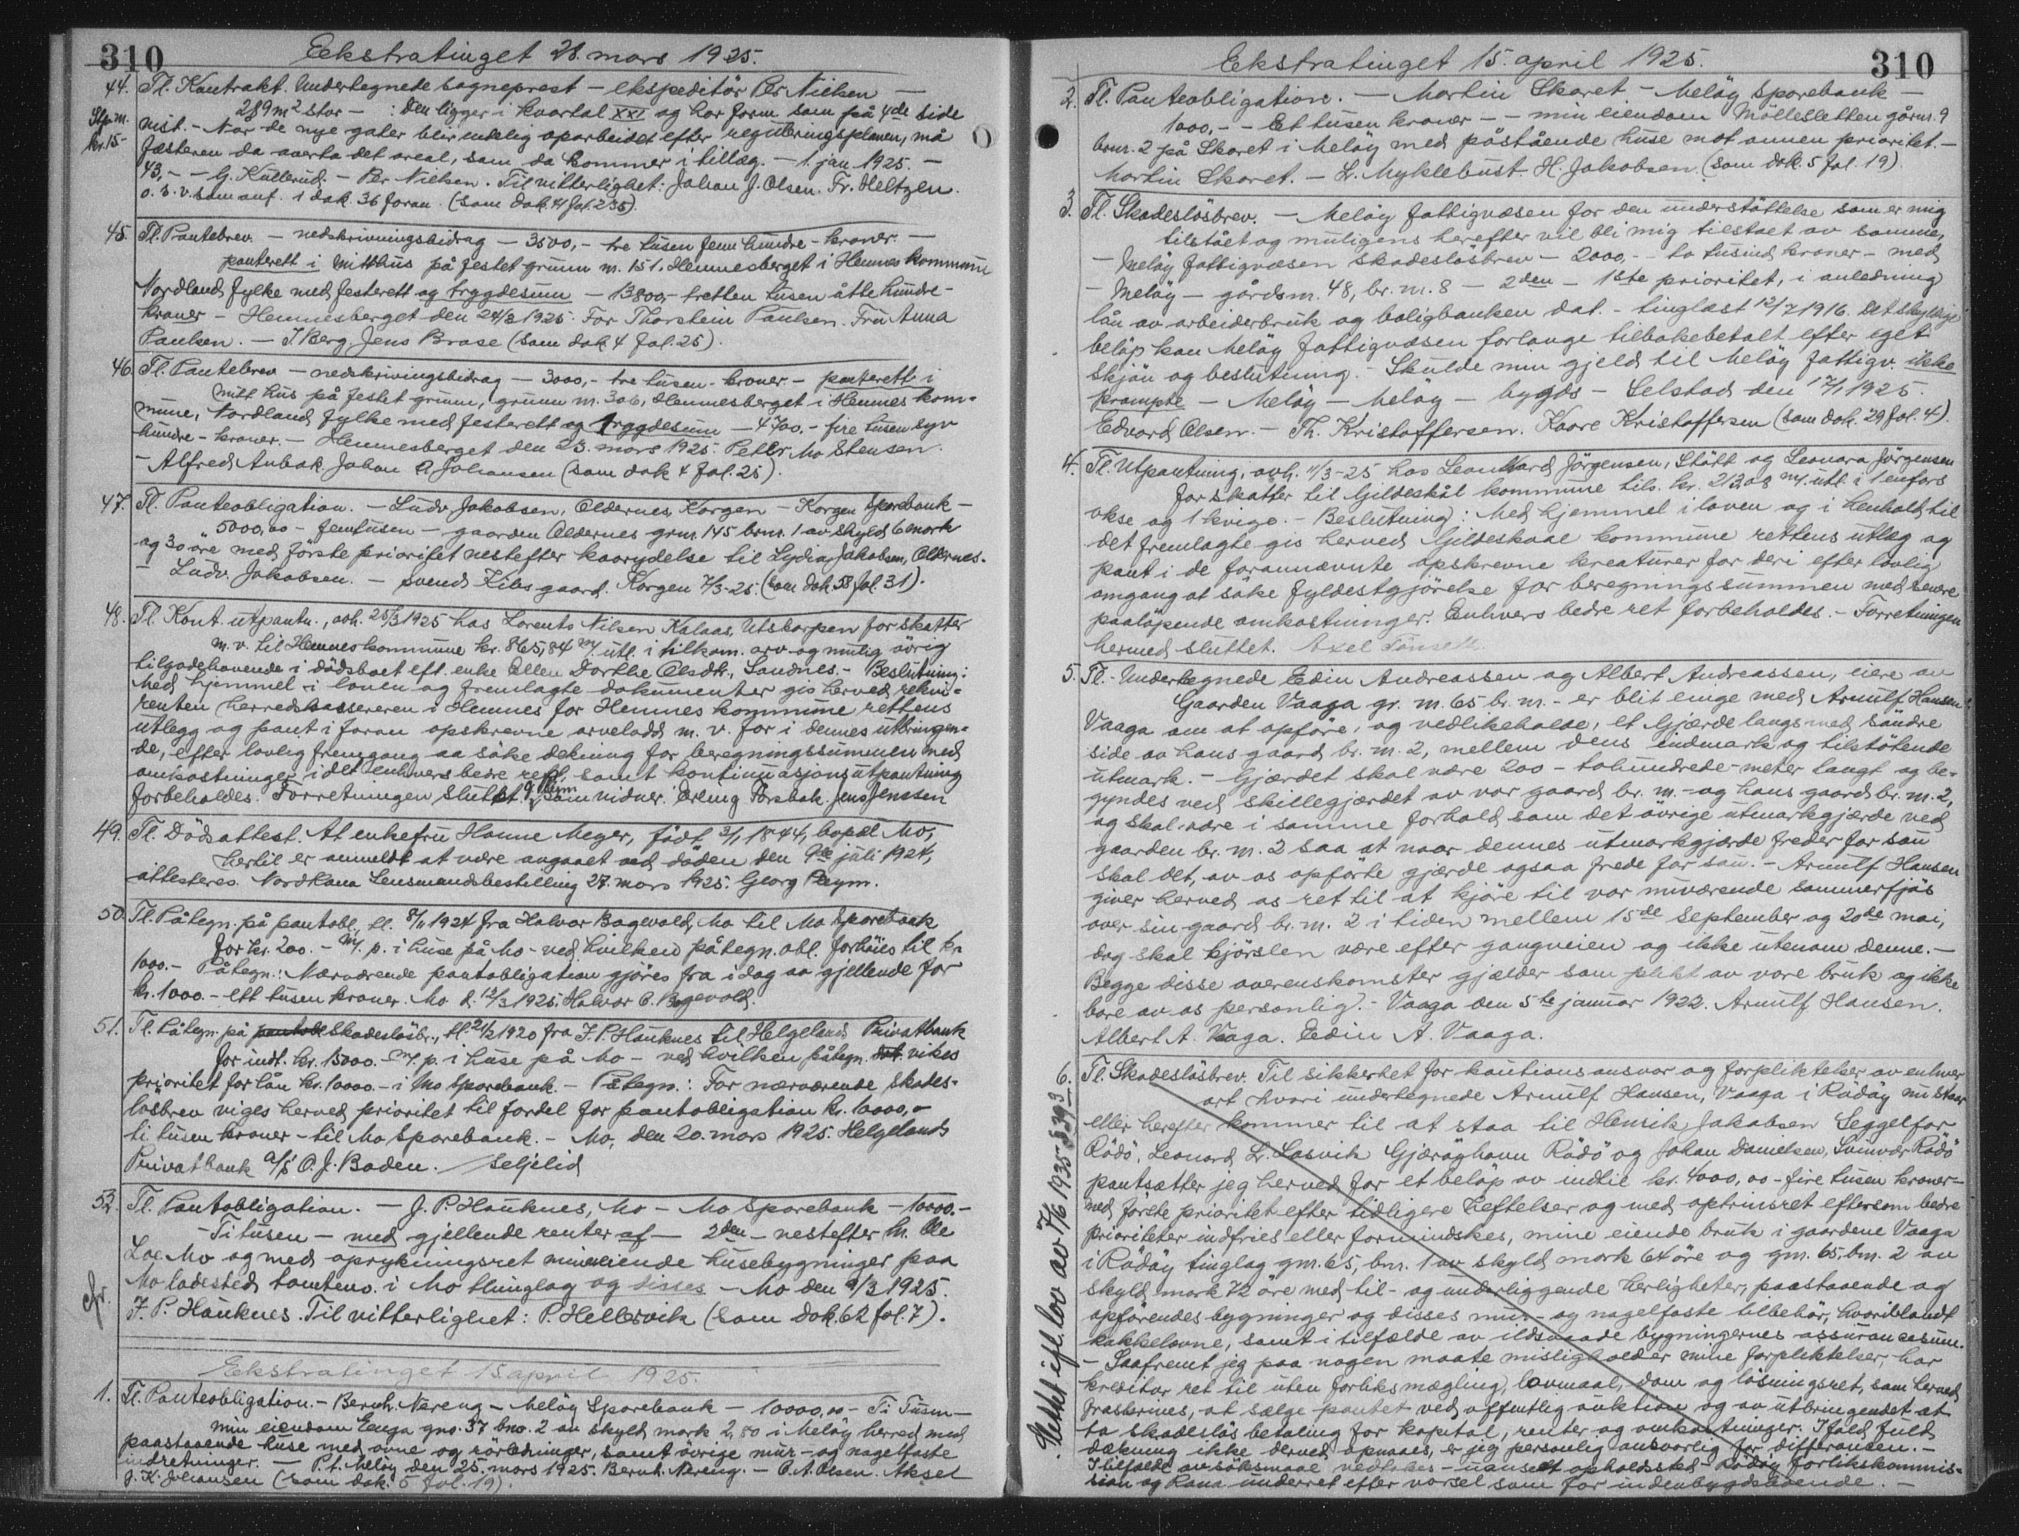 310
Ekstratinget 28. mars 1925.
44. Tl. Kontrakt. Undertegnede sogneprest – ekspeditör Per Nielsen –
Stp.m. kr. 15-
289 m² stor – : Den ligger i kvartal XXI og har form som på 4de side
vist. – Når de nye gater blir endelig oparbeidet efter reguleringsplanen, må
fæsteren da overta det areal, som da kommer i tillæg. – 1. jan. 1925. –
43,- – G. Kullerud. – Per Nielsen. Til vitterlighet: Johan J. Olsen. Fr. Heltzen.
o. s. v. som anf. i dok. 36 foran. (som dok. 41 fol. 235).
45. Tl. Pantebrev. – nedskrivningsbidrag – 3500,- tre tusen fem hundre – kroner. –
panterett i mitt hus på festet grunn nr. 151. Hemnesberget i Hemnes kommune
Nordland fylke med festerett og trygdesum – 13800,- tretten tusen åtte hundre-
kroner – Hemnesberget den 24/3 1925. For Thorstein Paulsen. Fru Anna
Paulsen. – J. Berg. Jens Brase (som dok 4 fol. 25).
46. Tl. Pantebrev – nedskrivingsbidrag – 3000,- tre tusen – kroner – panterett i
mitt hus på festet grunn, grunn nr. 306, Hemnesberget i Hemnes kom-
mune, Nordland fylke med festerett og trygdesum – 4700,- fire tusen syv
hundre – kroner. – Hemnesberget den 23. mars 1925. Peter Mo Stensen.
– Alfred Aubak. Johan A. Johansen (som dok 4 fol. 25).
47. Tl. Panteobligation. – Ludv. Jakobsen, Oldernes, Korgen – Korgen Sparebank –
5000,00 – femtusen – gaarden Oldernes grnr. 145 brnr. 1 av skyld 6 mark
og 30 öre med förste prioritet nestefter kaarydelse til Lydia Jakobsen, Oldernes.
– Ludv. Jakobsen. – Svend Zibsgaard. Korgen 7/3-25. (som dok 58 fol. 31).
48. Tl. Kont. utpantn., avh. 25/3 1925 hos Lorents Nilsen Kalaas, Utskarpen for skatter
m. v. til Hemnes kommune kr. 865,84 m/ utl. i tilkom. arv og mulig övrig
tilgodehavende i dödsboet eft. enke Ellen Dorthe Olsdtr., Sandnes. – Beslutning:
Med hjemmel i loven og fremlagte dokumenter gis herved rekvi-
renten herredskassereren i Hemnes for Hemnes kommune rettens
utlegg og pant i foran opskrevne arvelodd m. v. for i dennes utbringen-
de, efter lovlig fremgang aa söke dekning for beregningssummen med
omkostninger i det enhvers bedre rett, samt kontinuasjonsutpantning
forbeholdes. Forretningen sluttet. G. Pleym Som vidner: Erling Forsbak. Jens Jenssen
49. Tl. Dödsattest. At enkefru Hanne Meyer, födt 3/1 1844, bopæl Mo,
hertil er anmeldt at være avgaaet ved döden den 9de juli 1924,
attesteres. NordRana Lensmandsbestilling 27. mars 1925. Georg Pleym.
50. Tl. Påtegn. på pantobl., tl. 8/11 1924 fra Halvor Bogevold, Mo til Mo Sparebank
for kr. 200. – m/ p. i huse på Mo – ved hvilken påtegn. obl. forhöies til kr
1000.– Påtegn.: Nærværende pantobligation gjöres fra idag av gjellende for
kr. 1000. – Ett tusen kroner. Mo d. 12/3 1925. Halvor O. Bogevold.
51. Tl. Påtegn. på pantobl Skadeslösbr., tl. 21/2 1920 fra J. P. Hauknes til Helgelands Privatbank
for indt. kr. 15000. – m/ p. i huse på Mo – ved hvilken påtegn. det vikes
prioritet for lån kr. 10000. – i Mo Sparebank. – Påtegn.: For nærværende skades-
lösbrev viges herved prioritet til fordel for pantobligation kr. 10000,-
ti tusen kroner – til Mo Sparebank. – Mo, den 20. mars 1925. Helgelands
Privatbank A/S O. J. Baden. / Seljelid
52. Tl. Pantobligation. – J. P. Hauknes, Mo – Mo Sparebank – 10000.–
– Ti tusen – med gjellende renter af – 2den – nestefter kr. Ole
Loe Mo og med oprykningsret mine eiende husebygninger paa
Mo ladesteds tomteno. i Mo thinglag og disses – Mo den 9/3 1925.
J. P. Hauknes. Til vitterlighet: P. Hellesvik (som dok. 62 fol. 7).
cfr.
Ekstratinget 15 april 1925.
1. Tl. Panteobligation. – Bernh. Nereng – Melöy Sparebank – 10000,00 – Ti Tusen –
min eiendom Enga gno. 37 bno. 2 av skyld mark 2,80 i Melöy herred med
paastaaende huse med ovne og rörledninger, samt övrige mur- og nagelfaste
indretninger. – P.t. Melöy den 25. mars 1925. Bernh. Nereng. – O. A. Olsen. Aksel
J. K. Johansen (som dok. 5 fol. 19).
310
Ekstratinget 15. april 1925.
2. Tl. Panteobligation. – Martin Skaret – Melöy Sparebank –
1000,- – Et tusen kroner – – min eiendom Möllesletten gårnr. 9
brnr. 2 på Skaret i Melöy med påstående huse mot annen prioritet. –
Martin Skaret. – L. Myklebust. H. Jakobsen. (som dok. 5 fol. 19).
3. Tl. Skadeslösbrev. – Melöy fattigvæsen for den understöttelse som er mig
tilstået og muligens herefter vil bli mig tilstaet av samme,
– Melöy fattigvæsen skadeslösbrev – 2000,- – to tusind kroner – med
– Melöy – gårdsnr. 48, br. nr. 8 – 2den – 1ste prioritet, i anledning
lån av arbeiderbruk og boligbanken dat. – tinglæst 12/7 1916. Det skyldige
belöp kan Melöy fattigvæsen forlange tilbakebetalt efter eget
skjön og beslutning. – Skulde min gjeld til Melöy fattigv. ikke
krompte – Melöy – Melöy – bygds – Selstad den 17/1 1925.
Edvard Olsen. – Th. Kristoffersen. Kaare Kristoffersen (som dok. 29 fol. 4).
4. Tl. Utpantning, avh. 11/3-25 hos Leonhard Jörgensen, Stött og Leonora Jörgensen
for skatter til Gildeskål kommune tils. kr. 213,08 m/ utl. i 1 enfors
okse og 1 kvige. – Beslutning: Med hjemmel i loven og i henhold til
det fremlagte gis herved Gildeskaal kommune rettens utlæg og
pant i de forannævnte opskrevne kreaturer for deri efter lovlig
omgang at söke fyldestgjörelse for beregningssummen med senere
paalöpende omkostninger. Enhvers bedre ret forbeholdes. – Forretningen
hermed sluttet. Axel Tönseth.
5. Tl. – Undertegnede Edin Andreassen og Albert Andreassen, eiere av
Gaarden Vaaga gr. nr. 65 br. nr. – er blit enige med Arnulf Hansen
Vaaga om at opföre, og vedlikeholde, et Gjærde langs med söndre
side av hans gaard br. nr. 2, mellem dens indmark og tilstötende
utmark. – Gjærdet skal være 200 – tohundrede – meter langt og be-
gyndes ved skillegjærdet av vor gaard br. nr. – og hans gaard br. nr. 2,
og skal være i samme forhold som det övrige utmarkgjærde ved
gaarden br. nr. 2 saa at naar dennes utmarkgjærde freder for sau
skal det, av os opförte gjærde ogsaa frede for sau. – Arnulf Hansen
giver herved os ret til at kjöre til vor nuværende sommerfjös
over sin gaard br. nr. 2 i tiden mellem 15de september og 20de mai,
dog skal kjörslen være efter gangveien og ikke utenom denne. –
Begge disse overenskomster gjælder som plikt av vore bruk og ikke
bare av os personlig. – Vaaga den 5te januar 1922. Arnulf Hansen.
Albert A. Vaaga. Edin A. Vaaga.
6. Tl. Skadeslösbrev. Til sikkerhet for kautionsansvar og forpliktelser av enhver
art hvori undertegnede Arnulf Hansen, Vaaga i Rödöy nu staar
eller herefter kommer til at staa til Henrik Jakobsen Seggelfor
Rödö, Leonard L. Lasvik Gjæröghavn Rödö og Johan Danielsen, Svinvær Rödö
pantsætter jeg herved for et belöp av indtil kr. 4000,00 – fire tusen kroner –
med förste prioritet efter tidligere heftelser og med optrinsret eftersom bedre
prioriteter indfries eller formindskes, mine eiende bruk i gaardene Vaaga
i Rödöy tinglag gnr. 65, bnr. 1 av skyld mark 64 öre og gnr. 65, bnr. 2 av
skyld mark 72 öre med til- og underliggende herligheter, paastaaende og
opförendes bygninger og disses mur- og nagelfaste tilbehör, hvoriblandt
kakkelovne, samt i tilfælde av ildsvaade bygningernes assurancesum.
– Saafremt jeg paa nogen maate misligholder mine forpliktelser, har
kreditor ret til uten forliksmægling, lovmaal, dom og lösningsret, som herved
fraskrives, at sælge pantet ved offentlig auktion og av utbringendet at
ta skadeslös betaling for kapital, renter og omkostninger. Ifald fuld
dækning ikke derved opnaaes, er jeg personlig ansvarlig for differansen. –
I tilfælde av söksmaal vedtakes – uanset opholdssted – Rödöy forlikskommis-
sion og Rana underret efter varsel som for indenbygdsboende. –
Slettet ifl. lov av 7/6 1935 § 39 3